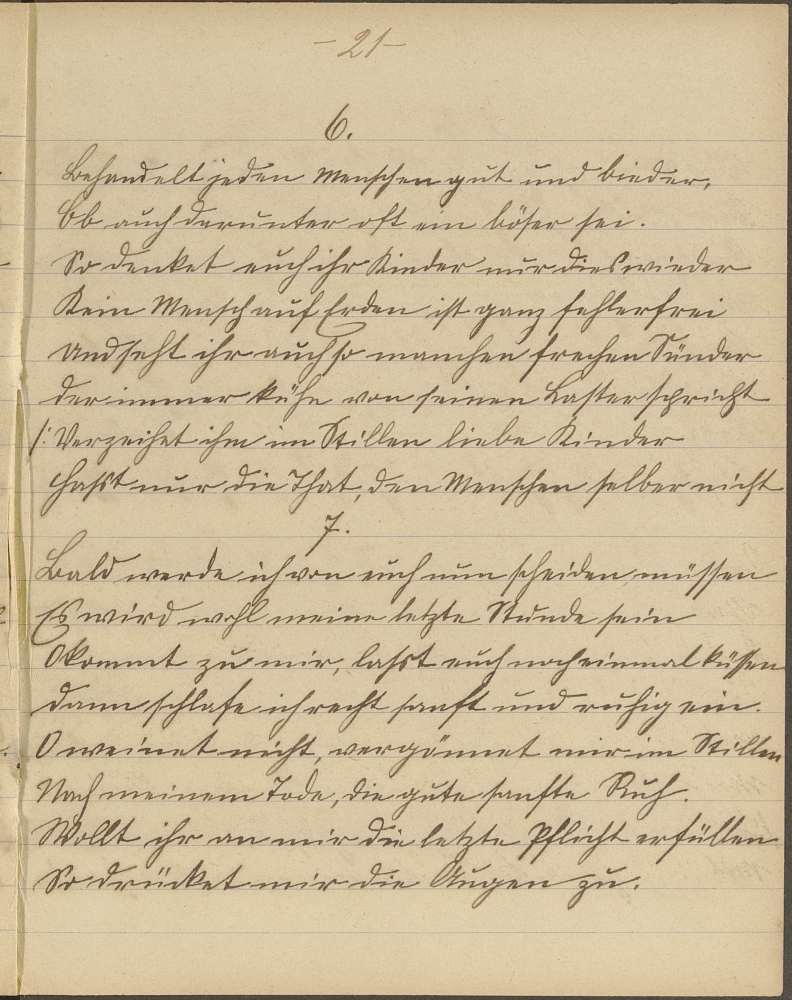 -21-
6.
Behandelt jeden Menschen gut und bieder,
Ob auch darunter oft ein böser sei.
So denket euch ihr Kinder nur dies wieder
Kein Mensch auf Erden ist ganz fehlerfrei
Und seht ihr auch so manchen frechen Sünder
der immer kühn von seinen Laster spricht
/: Verzeihet ihm im Stillen liebe Kinder
Hasst nur die That, den Menschen selber nicht
7.
Bald werde ich von euch nun scheiden müssen
Es wird wohl meine letzte Stunde sein
O kommt zu mir, lasst euch noch einmal küssen
dann schlafe ich recht sanft und ruhig ein.
O weinet nicht, vergönnet mir im Stillen
Nach meinem Tode, die gute sanfte Ruh.
Wollt ihr an mir die letzte Pflicht erfüllen
So drücket mir die Augen zu.